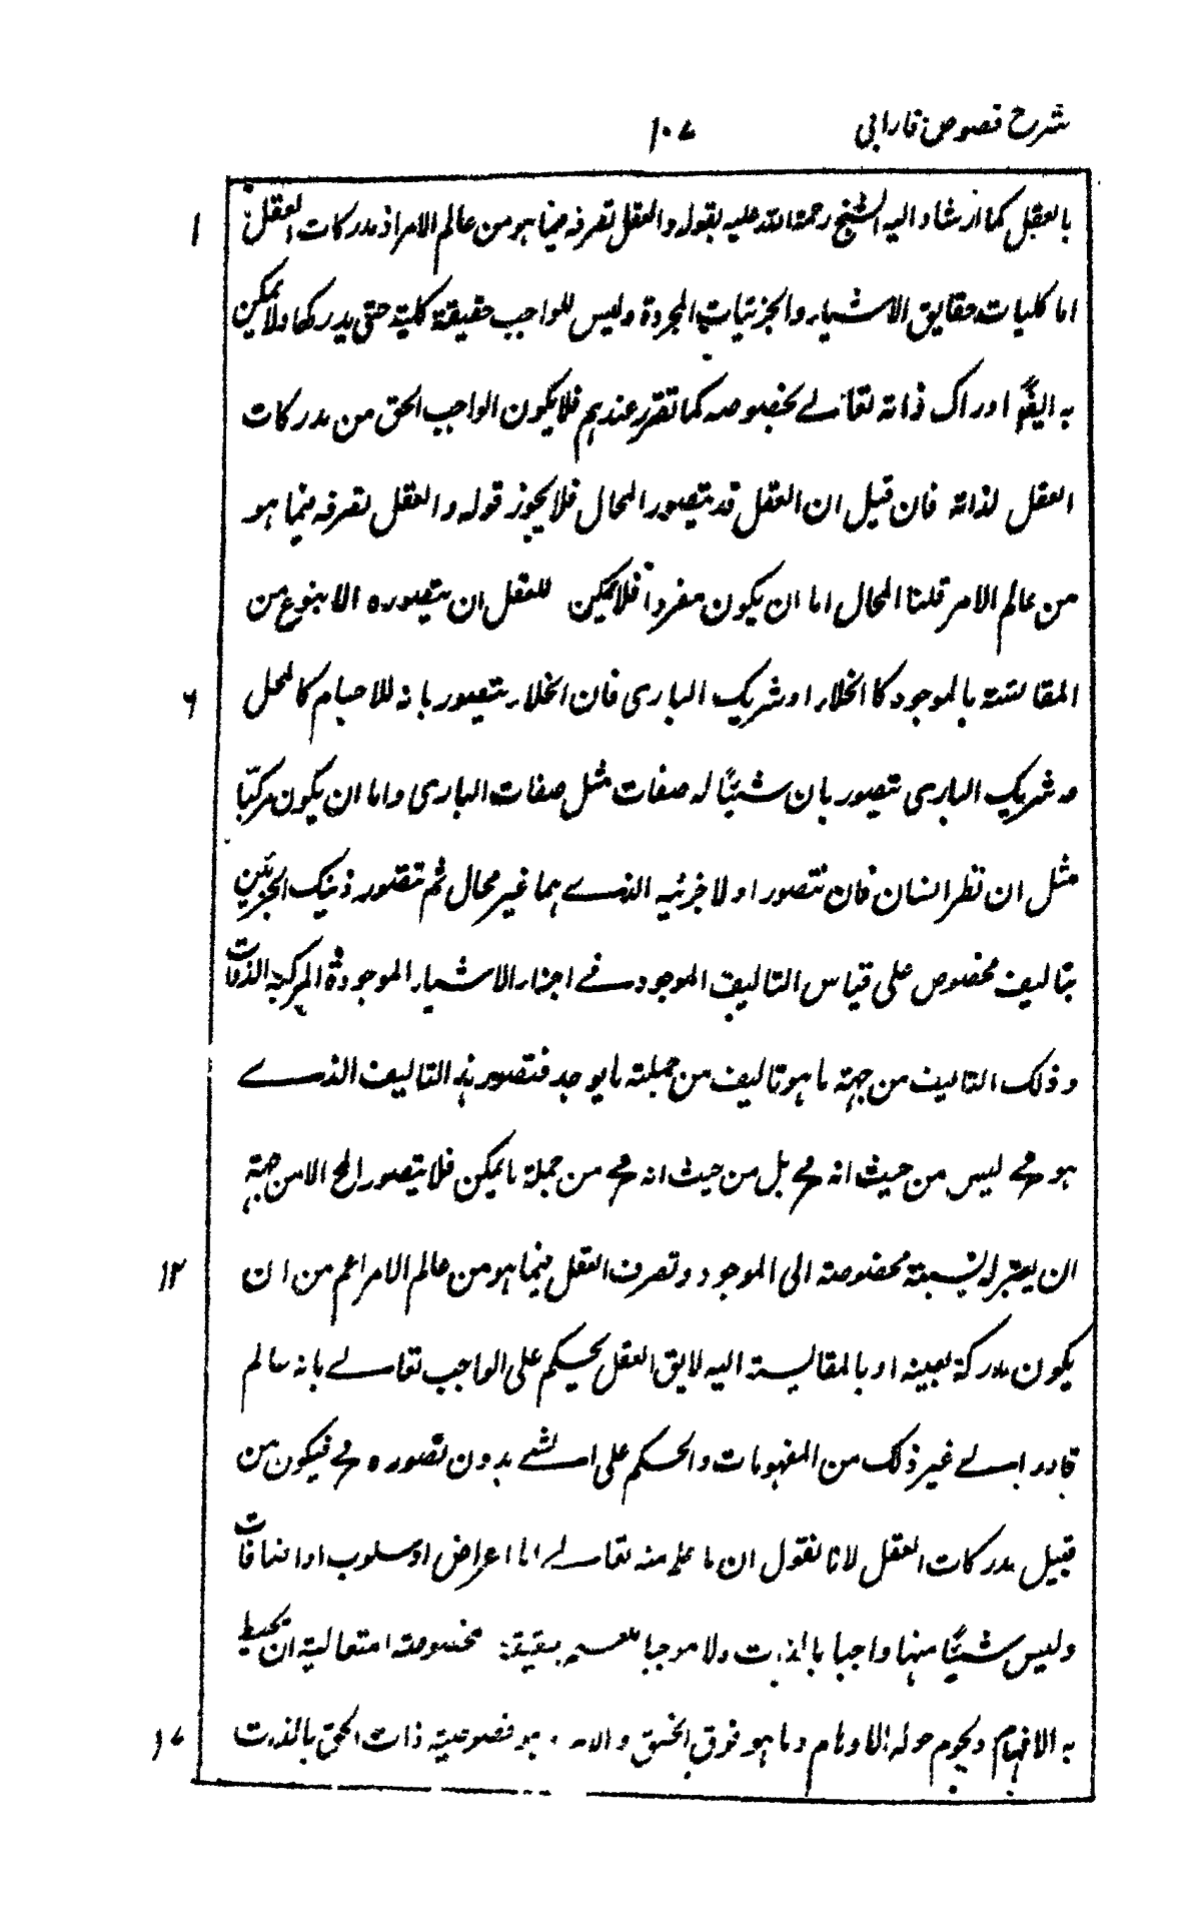 شرح فصوص فارابی ۱۰۷
بالعقل كما ارشاد اليه الشيخ رحمة الله عليه بقوله والعقل تصرفه فيما هو من عالم الامر اذ مدركات العقل ۱
اما كليات حقايق الاشياء والجزئيات المجردة وليس للواجب حقيقة كلية حتى يدركها ولا يمكن
به ايضًا ادراك ذاته تعالے بخصوصه كما تقرر عندهم فلا يكون الواجب الحق من مدركات
العقل لذاته فان قيل ان العقل قد يتصور المحال فلا يجوز قوله والعقل تصرفه فيما هو
من عالم الامر قلنا المحال اما ان يكون مفرداً فلا يمكن للعقل ان يتصوره الا بنوع من
المقائسته بالموجود كالخلاء او شريك البارى فان الخلاء يتصور بانه للاجسام كالمحل ۶
و شريك البارى يتصور بان شيئًا له صفات مثل صفات البارى واما ان يكون مركبّا
مثل ان نظر انسان فان نتصور اولا جزئيه الذے هما غير محال ثم تتصور ذينك الجزئين
بتاليف مخصوص على قياس التاليف الموجود فے اجزاء الاشياء الموجودة المركبة الذوات
و ذلك التاليف من جهته ما هو تاليف من جملته ما يوجد فتصور هذ التاليف الذے
هو مح ليس من حيث انه مح بل من حيث انه مح من جملة ما يمكن فلا يتصور المح الا من جهته
ان يعتبر له نسبة مخصوصته الى الموجود و تصرف العقل فيما هو من عالم الامر اعم من ان ۱۲
يكون مدركة بعينه او بالمقايسة اليه لايق العقل يحكم على الواجب تعالے بانه عالم
قادر الے غير ذلك من المفهومات والحكم على الشے بدون تصوره مح فيكون من
قبيل مدركات العقل لانا نقول ان ما علم منه تعالے اما اعراض او سلوب او اضافات
وليس شيئًا منها واجبا بالذات ولا موجبا مخصوصته امتعالية ان يحيط
به الافهام و يحوم حوله الاوهام وما هو فوق الخلق والامر هو خصوصيته ذات الحق بالذات ۱۷